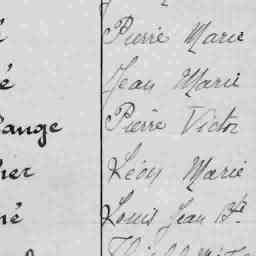 Pierre Marie
é Jean Marie
ange Pierre Victor
ier Léon Marie
né Louis Jean Bte